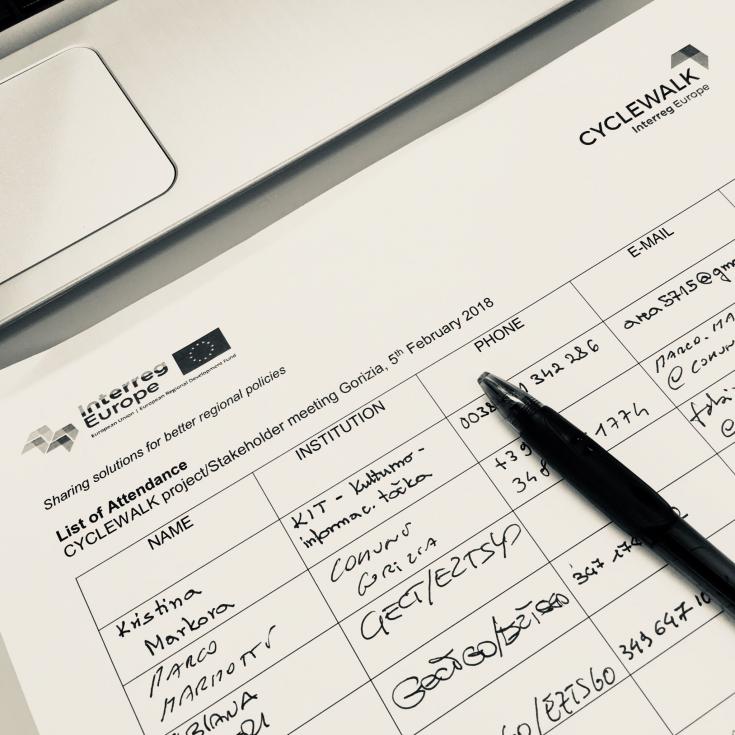 CYCLEWALK
Interreg Europe
Interreg
Europe
European Union | European Regional Development Fund
Sharing solutions for better regional policies
List of Attendance
CYCLEWALK project/Stakeholder meeting Gorizia, 5th February 2018
NAME
INSTITUTION
PHONE
E-MAIL
Kristina
Markora
KIT - Kulturno-
informac. točka
342 286
area5715@gm
MARCO
MARMOTTI
COMUNE
GORIZIA
1774
MARCO.MA
@COMUN
GECT/EZTSGO
347
349 647 10
/EZTSGO